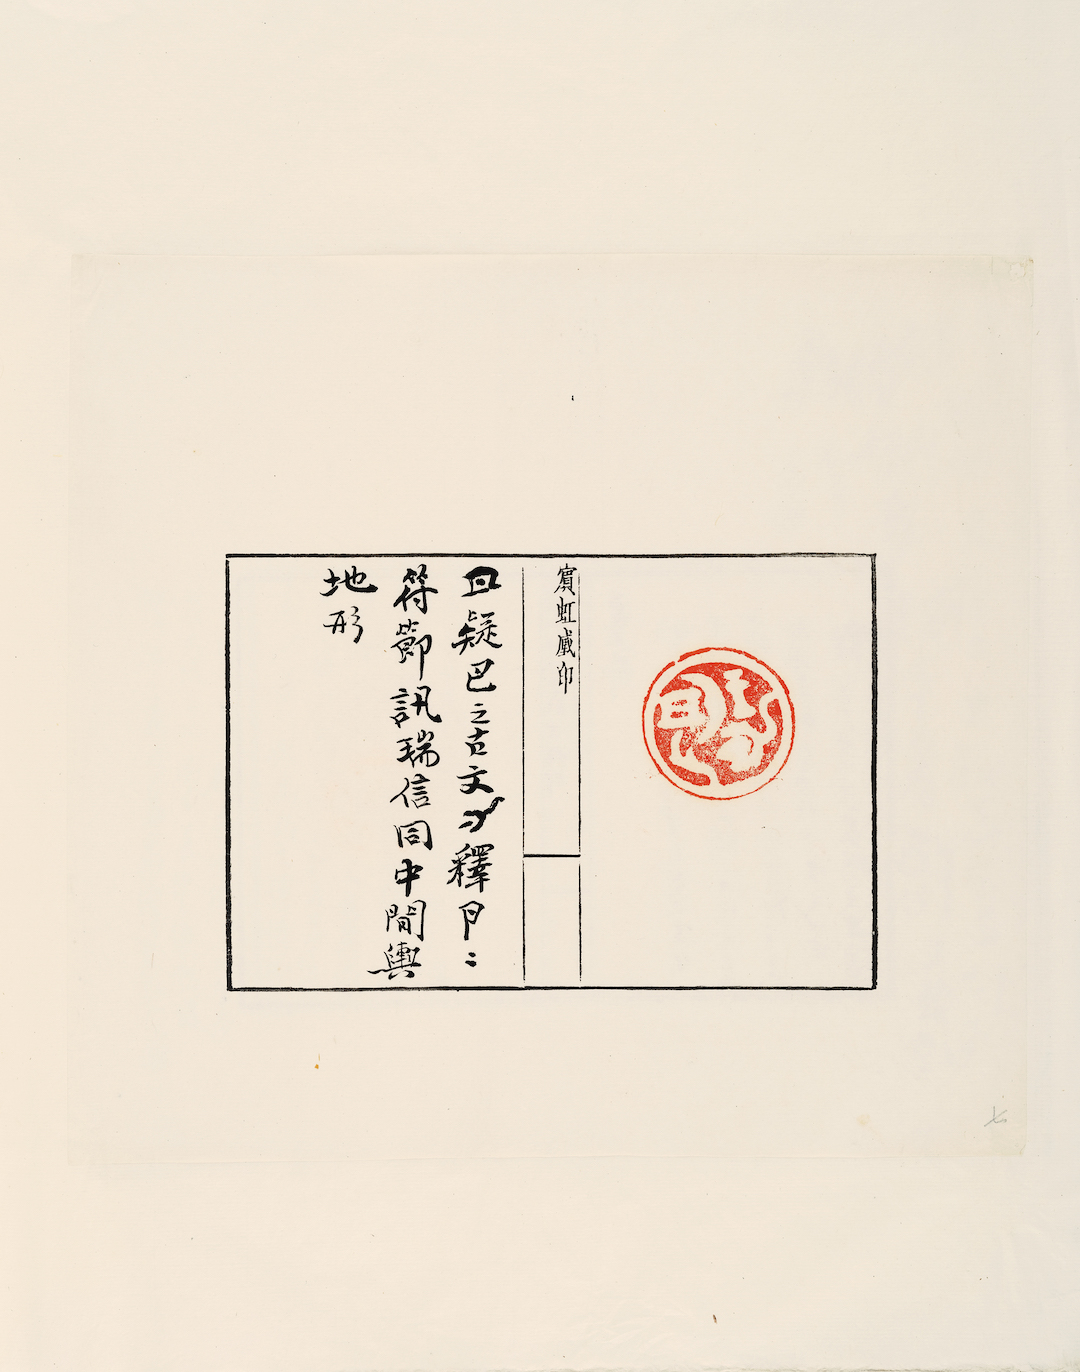 賓虹藏印
疑巴之古文釋卪〻
符節訊瑞信同中間輿
地形